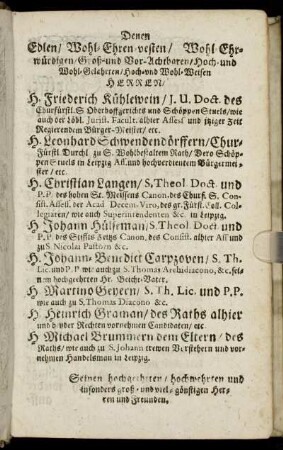 Denen
Edlen / Wohl-Ehren-vesten / Wohl-Ehr-
würdigen / Groß-und Vor-Achtbaren / Hoch-und
Wohl-Gelahrten / Hoch-und Wohl-Weisen
HERREN /
H. Friederich Kühlewein / J. U. Doct. des
Churfürstl. S. Oberhoffgerichts und Schöppen Stuels / wie
auch der löbl. Jurist. Facult. alhier Assess. und itziger Zeit
Regierendem Bürger-Meister / etc.
H. Leonhard Schwendendörffern / Chur-
Fürstl. Durchl. zu S. Wohlbestaltem Rath / Dero Schöp-
pen Stuels in Leipzig Ass. und hochverdientem Bürgermei-
ster / etc.
H. Christian Langen / S. Theol. Doct. und
P. P. des hohen St. Meissens Canon. des Churf. S. Con-
sist. Assess. der Acad. Decem-Viro, des gr. Fürst.
Collegiaten / wie auch Superintendenten &c. in Leipzig.
H Johann Hülseman / S. Theol. Doct. und
P. P. des Stiffts Zeitz Canon. des Consist. alhier Ass. und
zu S Nicolai Pastorn &c.
H. Johann-Benedict Carpzoven / S. Th.
Lic. und P. P. wie auch zu S. Thomas Archidiacono, &c. sei-
nem hochgeehrten Hr. Beicht-Vater.
H. Martino Geyern / S. Th. Lic. und P. P.
wie auch zu S. Thomas Diacono &c.
H. Heinrich Graman / des Raths alhier
und beyder Rechten vornehmen Candidaten / etc.
H Michael Brummern dem Eltern / des
Raths / wie auch zu S. Johann trewen Verstehern und vor-
nehmen Handelsman in Leipzig.
Seinen hochgeehrten / hochwehrten und
insonders groß-und viel-günstigen Her-
ren und Freunden.